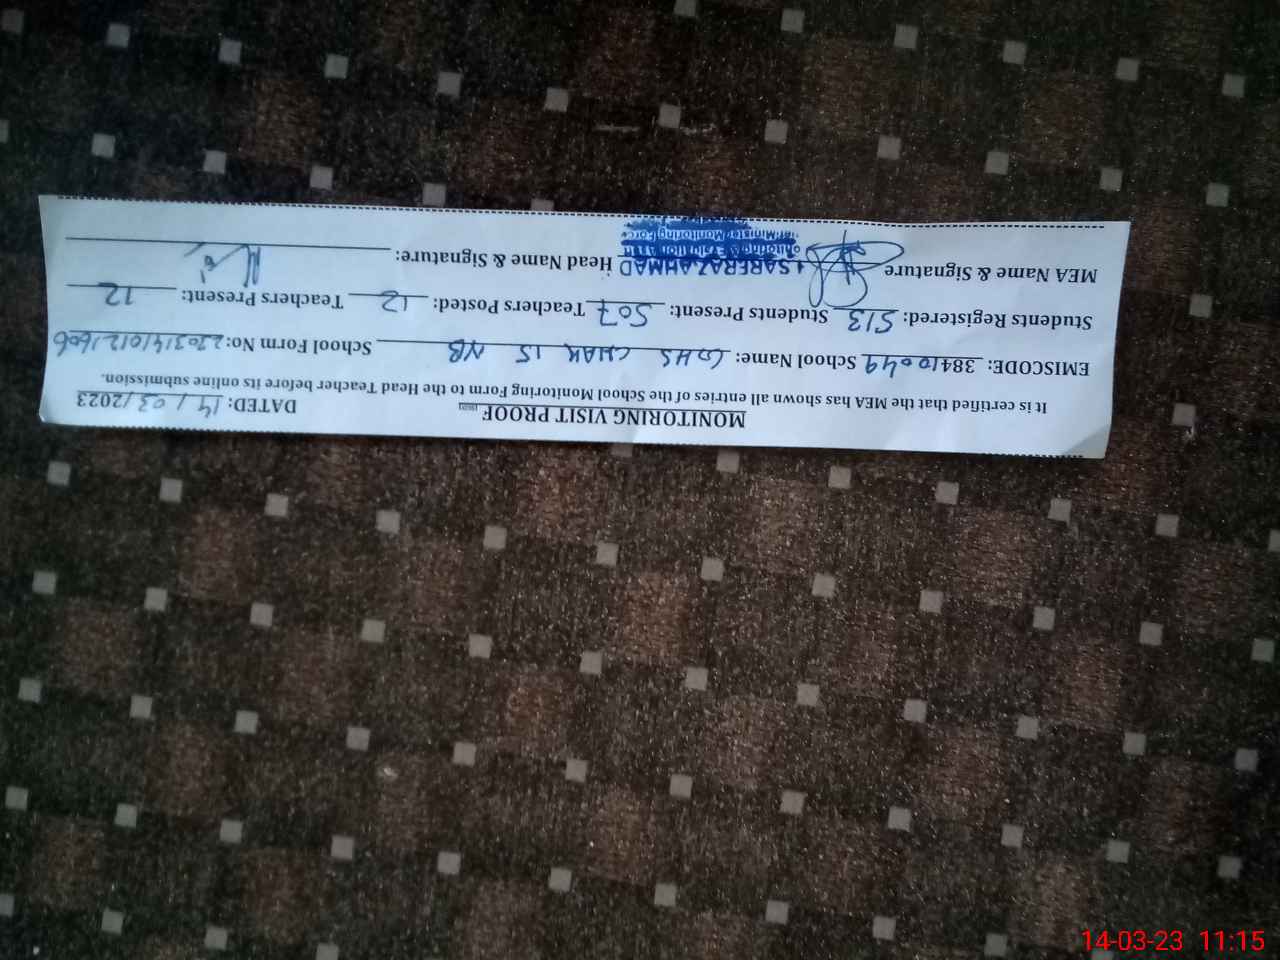 MONITORING VISIT PROOF DATED: 14/03/2023
It is certified that the MEA has shown all entries of the School Monitoring Form to the Head Teacher before its online submission.
EMISCODE: 38410049 School Name: GHS CHAK 15 NB School Form No:
Students Registered: 513 Students Present: 507 Teachers Posted: 12 Teachers Present: 12
MEA Name & Signature SARFRAZ AHMAD Head Name & Signature:
Monitoring Force
14-03-23 11:15